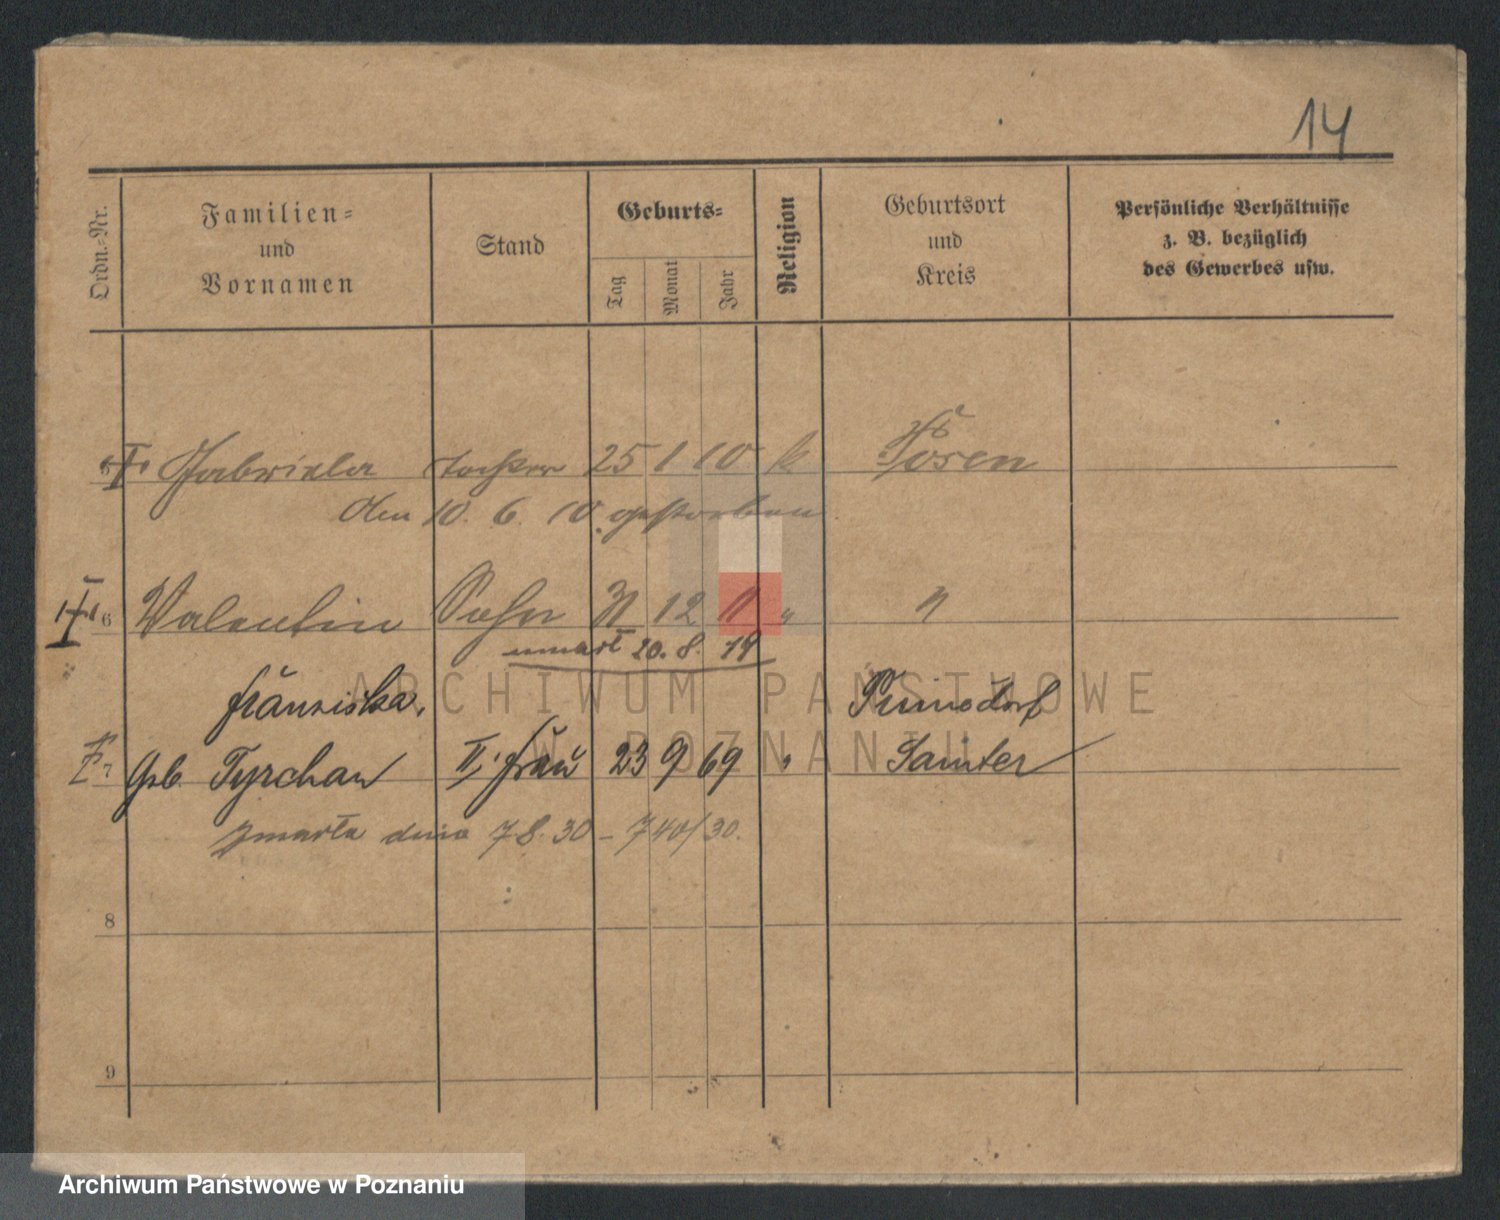 14
Ordn.-Nr.
Familien-
und
Vornamen
Stand
Geburts-
Tag
Monat
Jahr
Religion
Geburtsort
und
Kreis
Persönliche Verhältnisse
z. B. bezüglich
des Gewerbes usw.
5 Gabriela Tochter 25 1 10 k Posen
den 10. 6. 10 gestorben
6 Valentin Sohn 31 12 11 " "
umarł 20. 8. 19
ARCHIWUM PAŃSTWOWE
W POZNANIU
Franziska,
7 Geb. Tyrchan II. Frau 23 9 69 " Samter
zmarła dnia 7 8. 30 – 740/30.
8
9
Archiwum Państwowe w Poznaniu